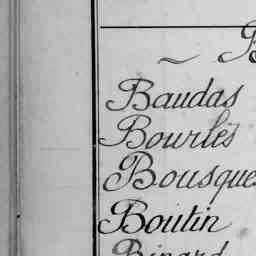 ~ B
Baudas
Bourlès
Bousque
Boutin
Binard